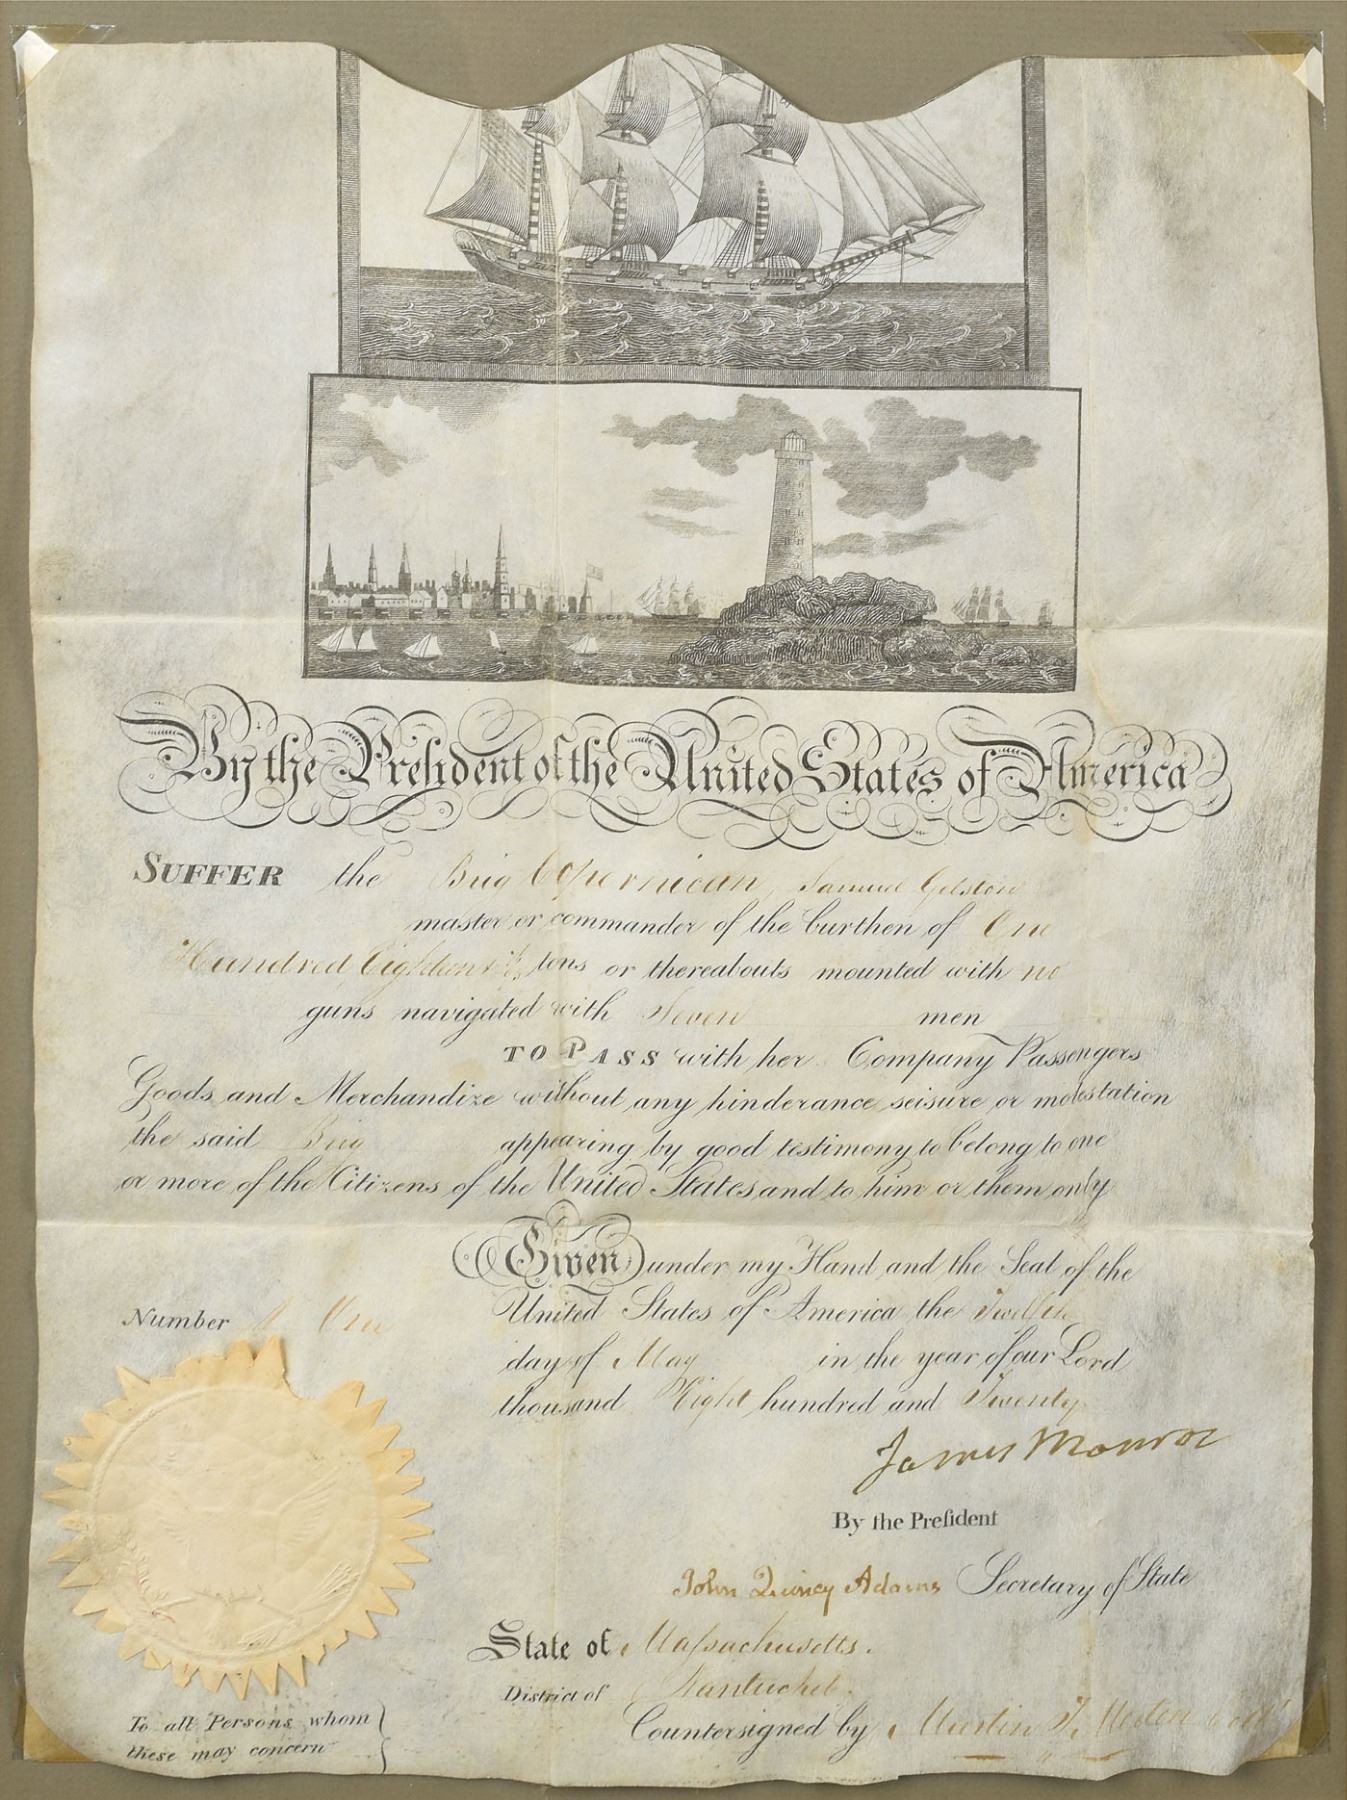 By the Preſident of the United States of America
SUFFER the Brig Copernican, Samuel Gelston
master or commander of the burthen of One
Hundred Eighteen tons or thereabouts mounted with no
guns navigated with Seven men
TO PASS with her Company Passengers
Goods and Merchandize without any hinderance seisure or molestation
the said Brig appearing by good testimony to belong to one
or more of the Citizens of the United States and to him or them only
Given under my Hand and the Seal of the
United States of America the Twelfth
Number One
day of May in the year of our Lord
thousand Eight hundred and Twenty
James Monroe
By the Preſident
John Quincy Adams Secretary of State
State of Maſsachusetts.
District of Nantucket.
To all Persons whom
these may concern
Countersigned by Martin T. Morton Coll